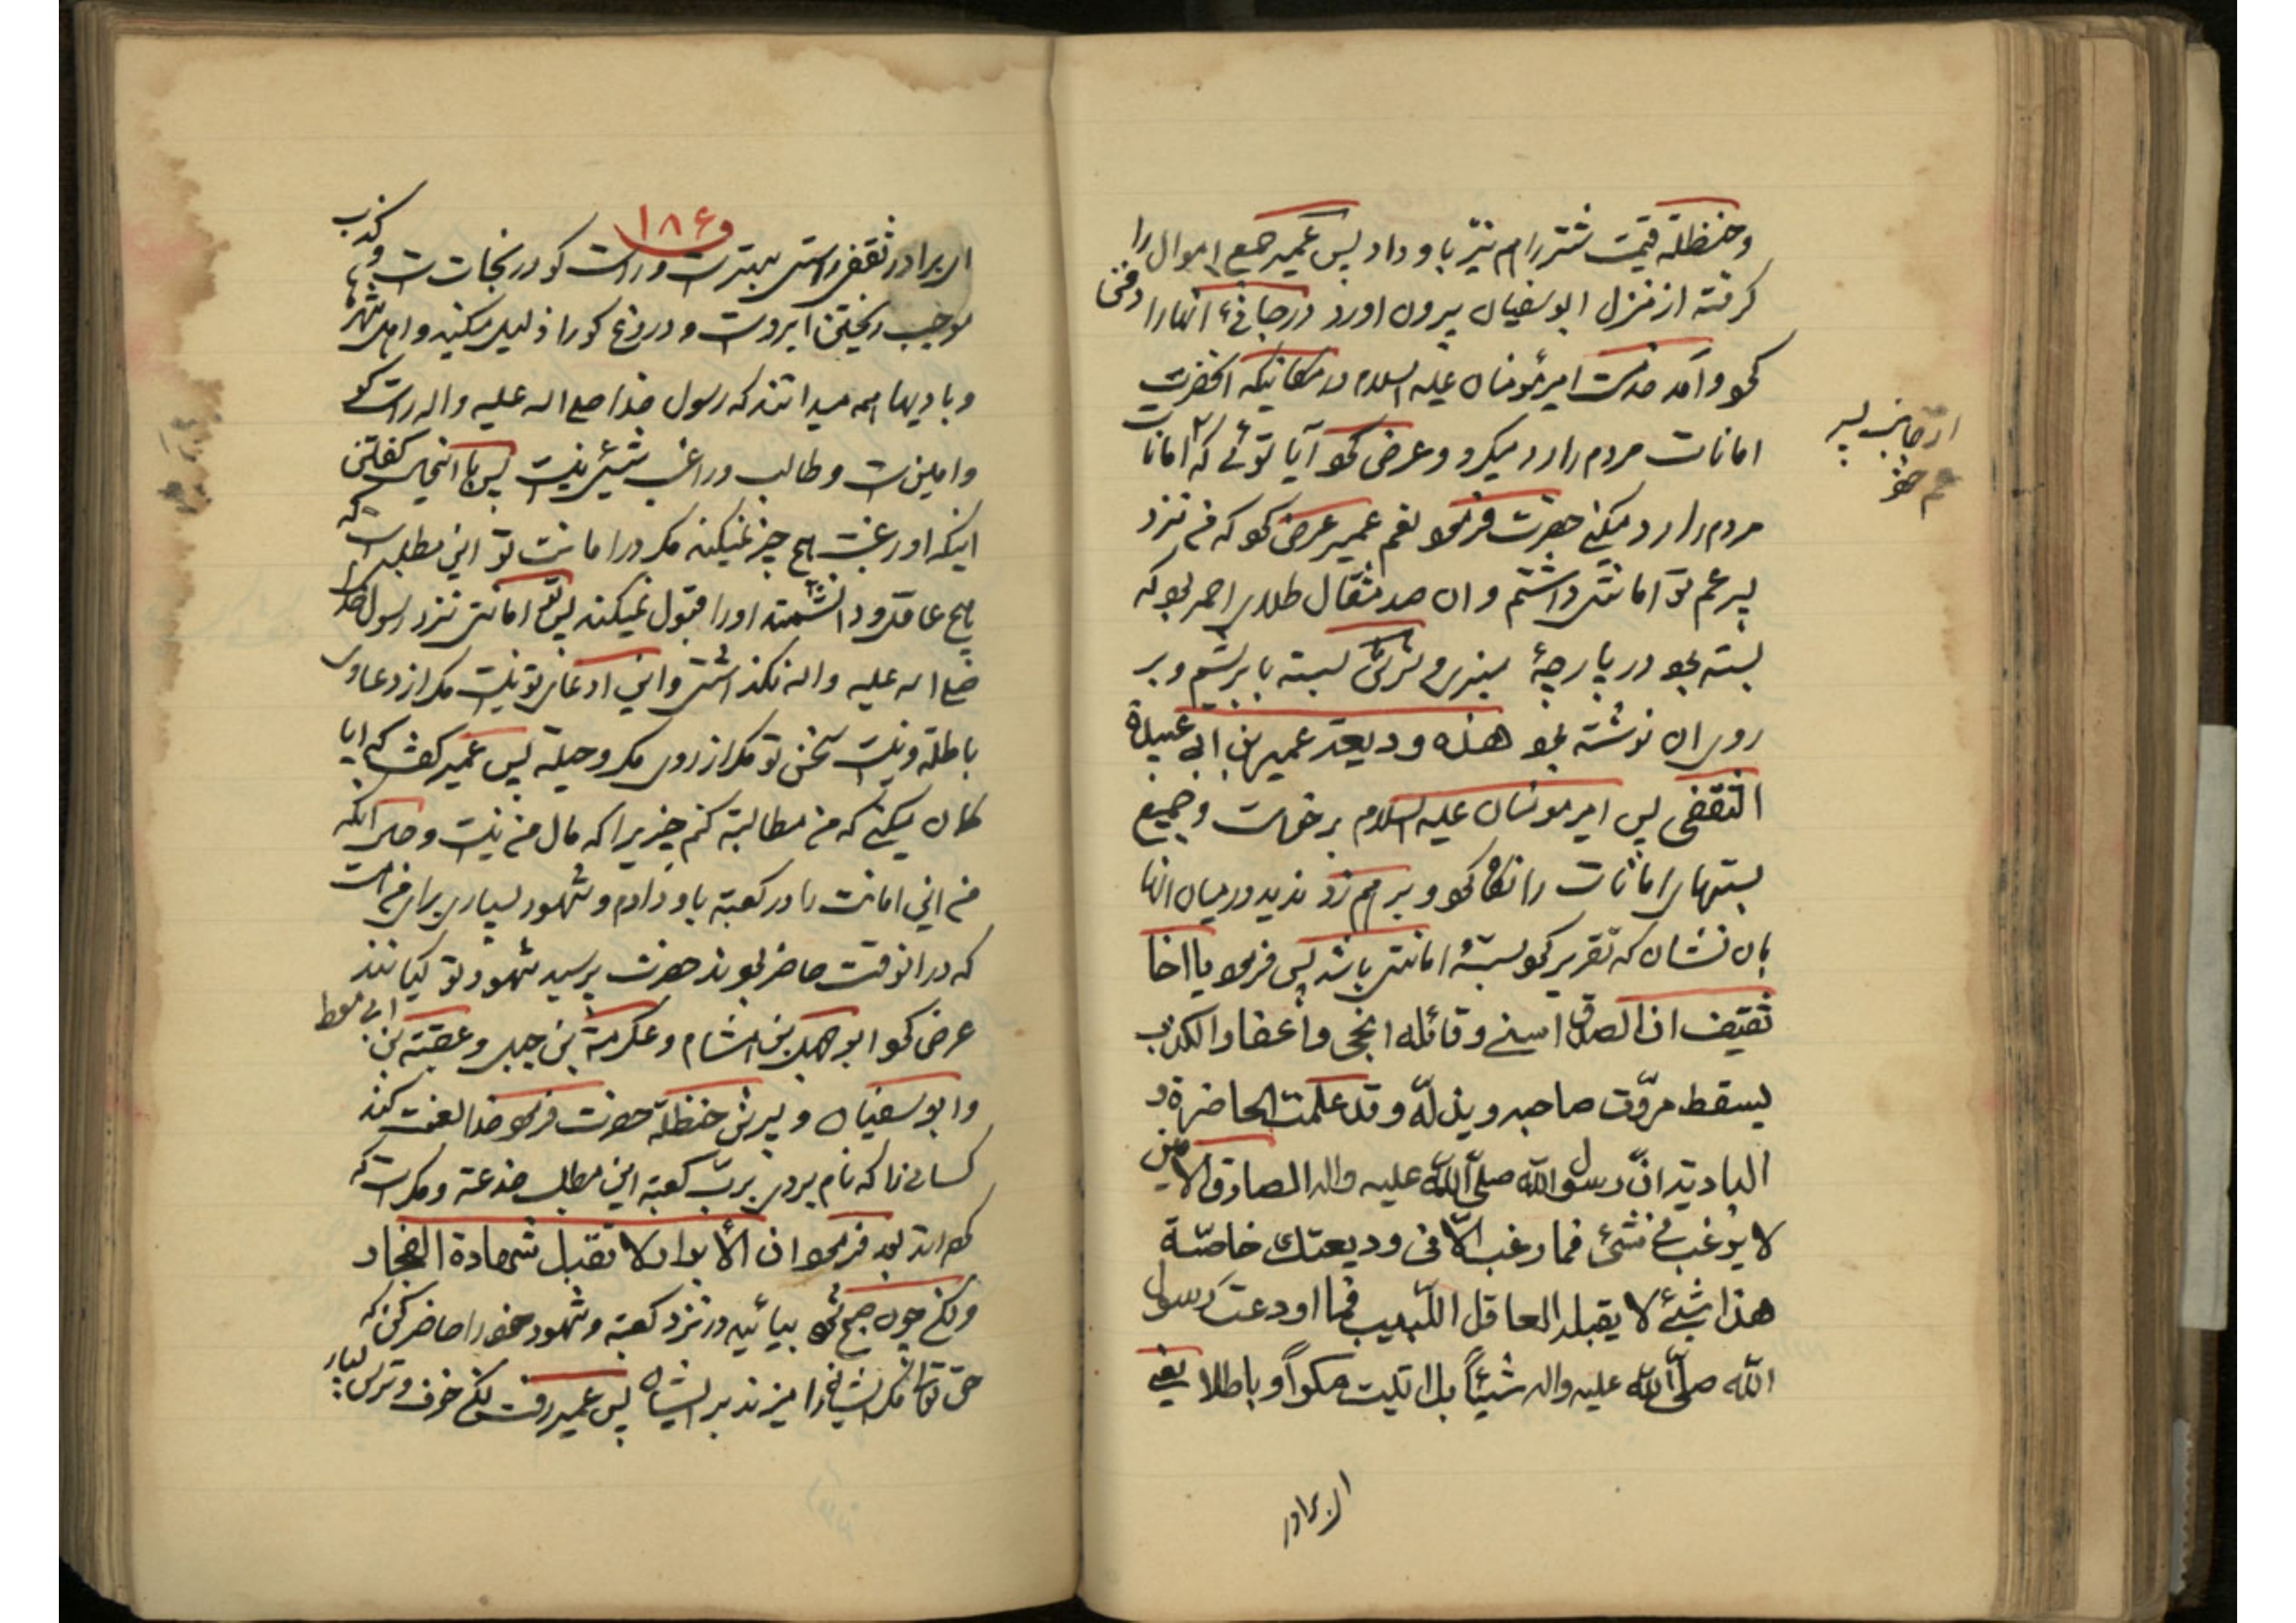 وحنظلة قیمت شتر را هم نیز باو داد پس عمیر جمیع اموال را
کرفته از منزل ابوسفیان بیرون اورد و در جائی انها را دفن
نمود و آمد خدمت امیرمؤمنان علیه السلام در مکانیکه انحضرت
امانات مردم را رد میکرد و عرض نمود آیا توئی که امانات
مردم را رد میکنی حضرت فرمود نعم عمیر عرض نمود که من نزد
پسر عم تو امانتی داشتم و ان صد مثقال طلای احمر بود که
بسته بود در پارچهٔ سبزی و سرش بسته بابریشم و بر
روی ان نوشته بود هذه ودیعة عمیر بن ابی عبیلة
الثقفی پس امیرمؤمنان علیه السلام برخواست و جمیع
بستهای امانات را نکاه نمود و بر هم زد ندید در میان انها
بان نشان که تقریر نمود بستهٔ امانتی باشد پس فرمود یا اخا
ثقیف ان الصدق اسنی وقائله انجی واعفا والکذب
یسقط مروّت صاحبه ویذلّه وقد علمت الحاضرة و
البادیة انّ رسول الله صلّی الله علیه واله الصادق الامین
لا یرغب فی شئ فما رغب الّا فی ودیعتك خاصّة
هذا شئ لا یقبله العاقل اللّبیب فما اودعت رسول
الله صلّی الله علیه واله شیئاً بل اتیت مکراً و باطلا یعنی
ای برادر
از جانب پسر
عم خود
۱۸۶
ای برادر ثقفی راستی بهتر است و راست کو در نجات است و کذب
موجب ریختن آبروست و دروغ کو را ذلیل میکند و اهل شهرها
و بادیها همه میدانند که رسول خدا صلی اله علیه و اله راست کو
و امین است و طالب و راغب شیئی نیست پس با اینحال کفتن
اینکه او رغبت بهیچ چیز نمیکند مکر در امانت تو این مطلبی است که
هیچ عاقل و دانشمند او را قبول نمیکند پس تو امانتی نزد رسول خدا
صلی اله علیه و اله نکذاشتی و این ادعای تو نیست مکر از دعاوی
باطله و نیست سخن تو مکر از روی مکر و حیله پس عمیر کفت که ایا
کمان میکنی که من مطالبه کنم چیزیرا که مال من نیست و حال انکه
من این امانت را در کعبه باو دادم و شهود بسیاری برای من است
که در انوقت حاضر بودند حضرت پرسید شهود تو کیانند
عرض نمود ابوجهل بن هشام و عکرمة بن جهل و عقبة بن ابی معیط
و ابوسفیان و پسرش حنظله حضرت فرمود خدا لعنت کند
کسانی را که نام بردی بربّ کعبه این مطلب خدعه و مکر است که
کرده اند بعد فرمود ان الأبرار لا تقبل شهادة الفجار
ولکن چون صبح شود بیائید در نزد کعبه و شهود خود را حاضر کن که
حق تعالی مکر ایشان را میزند بر ایشان پس عمیر رفت لکن خوف و ترس بسیار